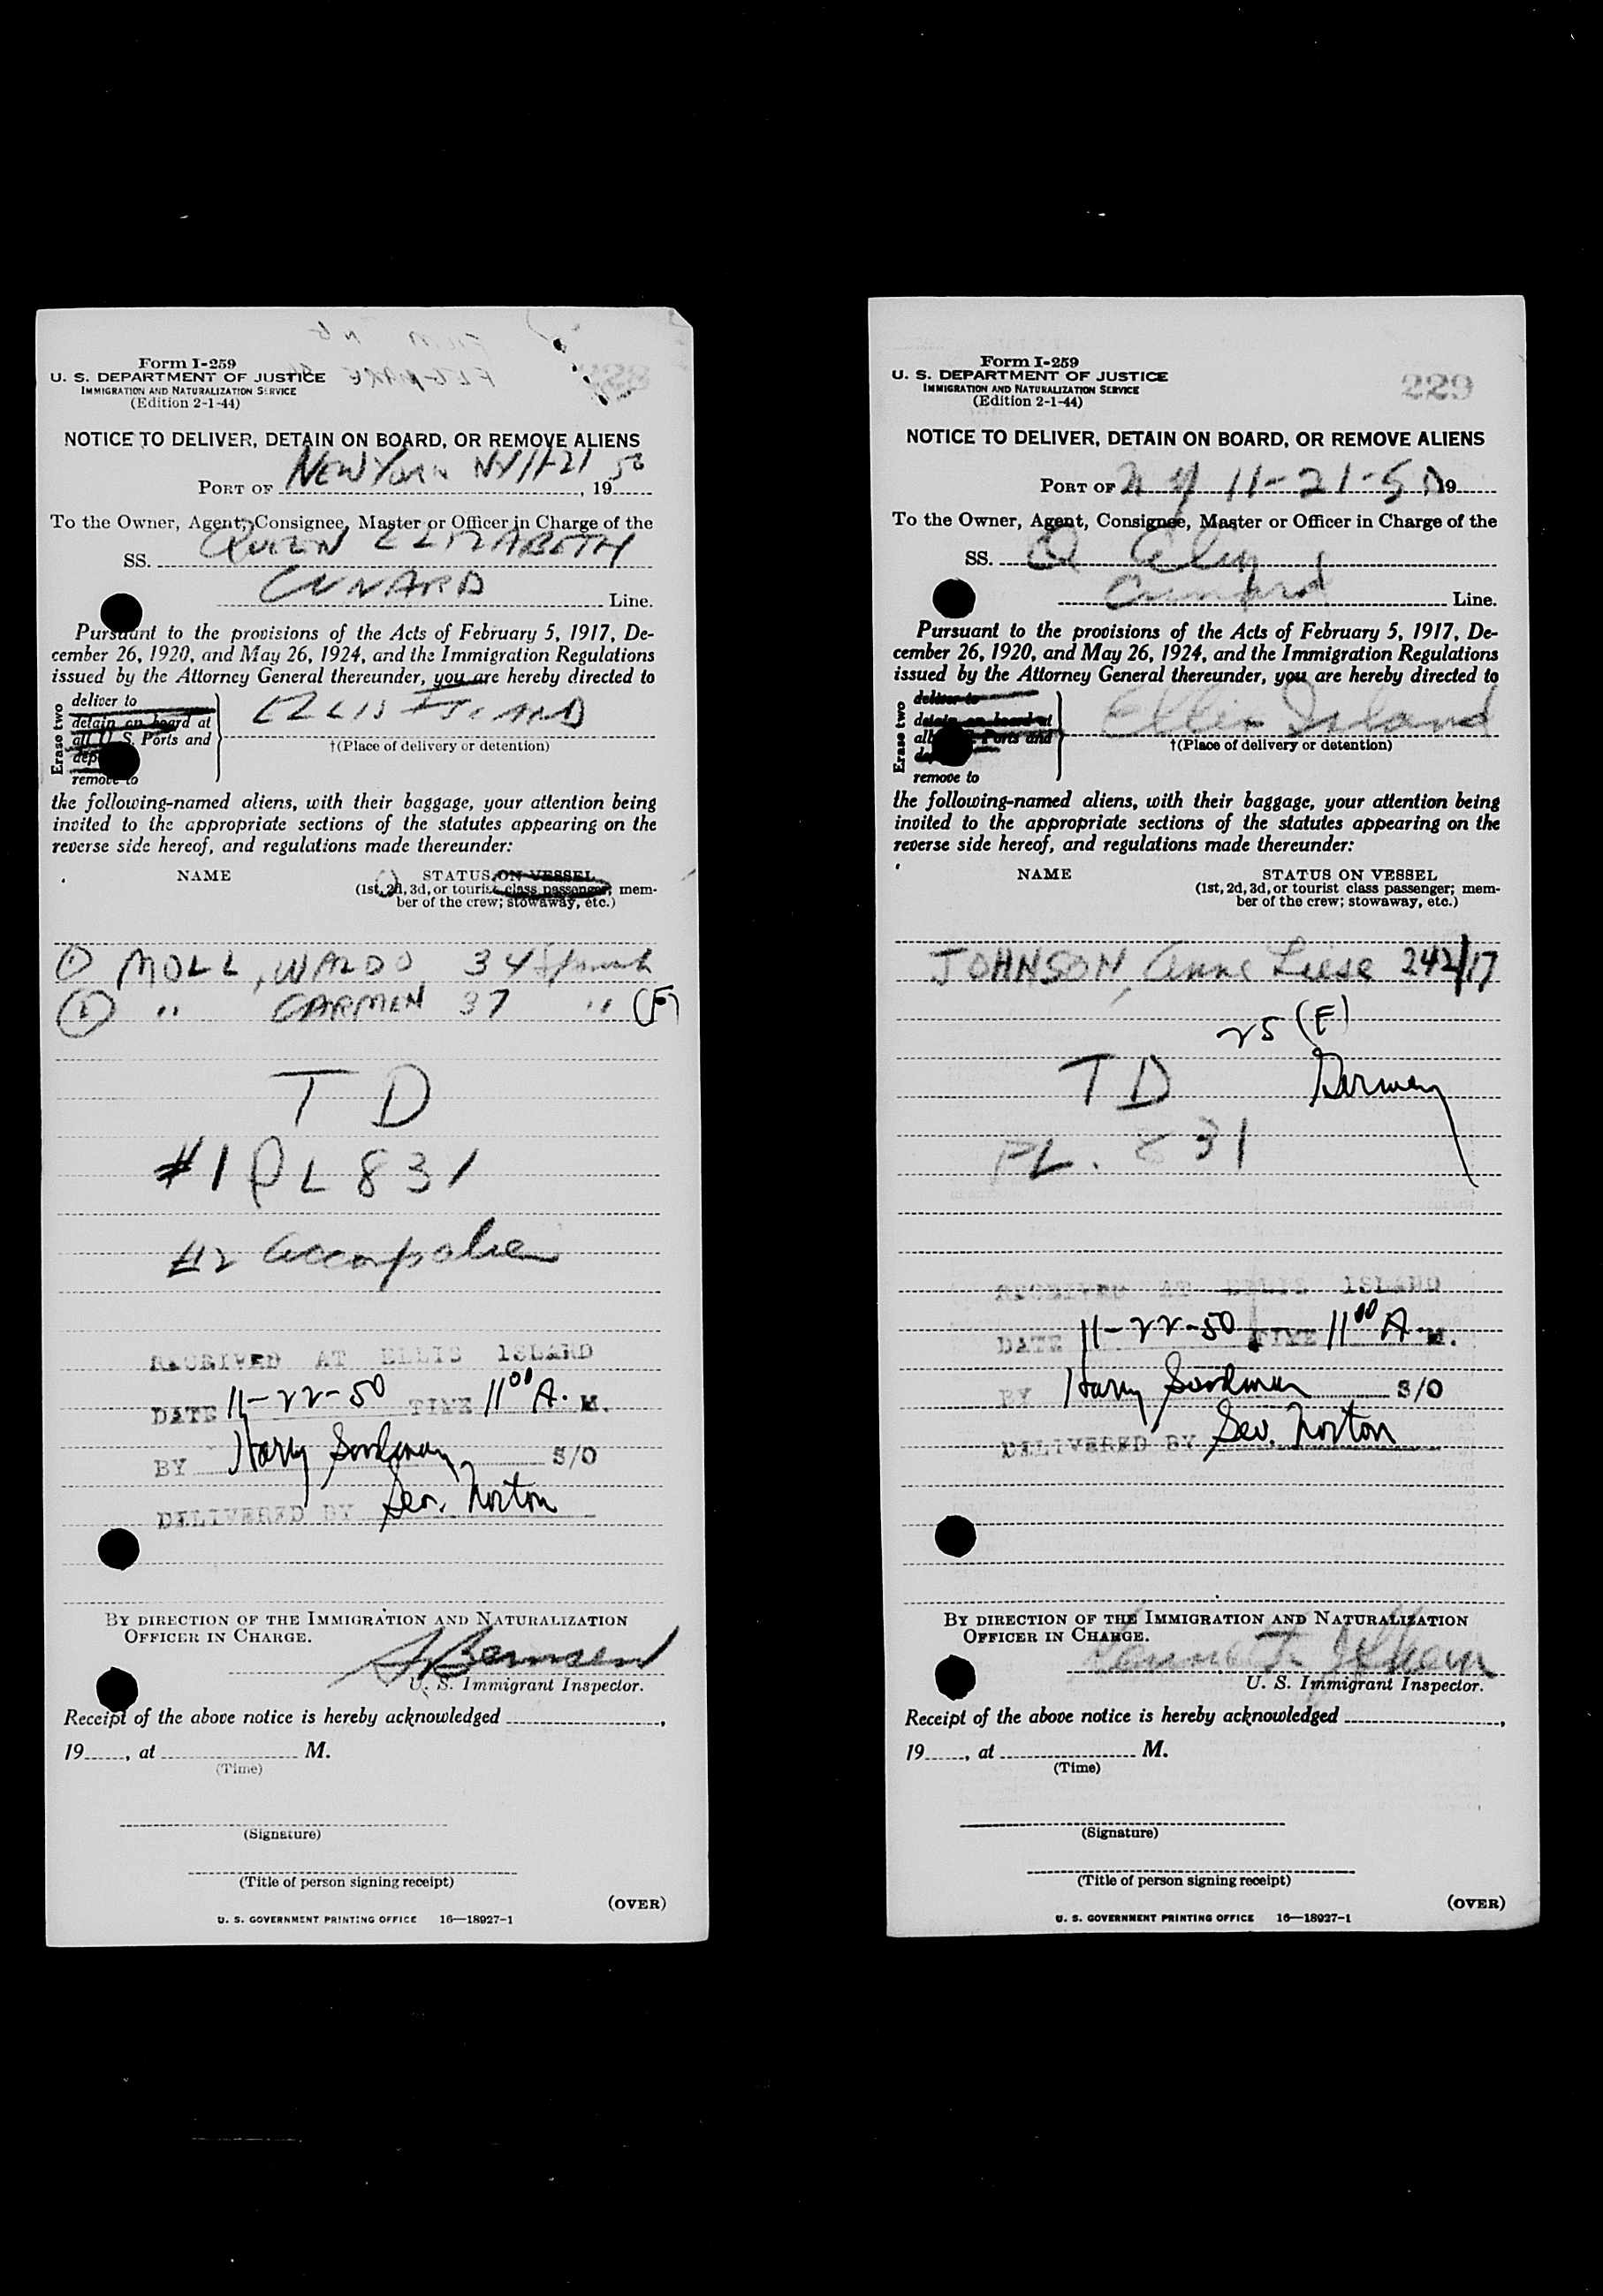 Form I-259
U. S. DEPARTMENT OF JUSTICE
IMMIGRATION AND NATURALIZATION SERVICE
(Edition 2-1-44)
NOTICE TO DELIVER, DETAIN ON BOARD, OR REMOVE ALIENS
PORT OF NEW YORK NY 11-21, 1950
To the Owner, Agent, Consignee, Master or Officer in Charge of the
SS. QUEEN ELIZABETH
CUNARD Line.
Pursuant to the provisions of the Acts of February 5, 1917, De-
cember 26, 1920, and May 26, 1924, and the Immigration Regulations
issued by the Attorney General thereunder, you are hereby directed to
Erase two
deliver to
detain on board at
all U. S. Ports and
remove to
ELLIS ISLAND
†(Place of delivery or detention)
the following-named aliens, with their baggage, your attention being
invited to the appropriate sections of the statutes appearing on the
reverse side hereof, and regulations made thereunder:
NAME STATUS ON VESSEL
(1st, 2d, 3d, or tourist class passenger; mem-
ber of the crew; stowaway, etc.)
① MOLL, WALDO 34
② " CARMEN 37 " (F)
T D
#1 PL 831
#2
RECEIVED AT ELLIS ISLAND
DATE 11-22-50 TIME 11⁰⁰ A. M.
BY Harry Goodman S/O
DELIVERED BY Sev. Norton
BY DIRECTION OF THE IMMIGRATION AND NATURALIZATION
OFFICER IN CHARGE.
U. S. Immigrant Inspector.
Receipt of the above notice is hereby acknowledged ,
19 , at M.
(Time)
(Signature)
(Title of person signing receipt)
(OVER)
U. S. GOVERNMENT PRINTING OFFICE 16—18927-1
Form I-259
U. S. DEPARTMENT OF JUSTICE
IMMIGRATION AND NATURALIZATION SERVICE
(Edition 2-1-44)
229
NOTICE TO DELIVER, DETAIN ON BOARD, OR REMOVE ALIENS
PORT OF N Y 11-21-50, 19
To the Owner, Agent, Consignee, Master or Officer in Charge of the
SS. Q Eliz
Cunard Line.
Pursuant to the provisions of the Acts of February 5, 1917, De-
cember 26, 1920, and May 26, 1924, and the Immigration Regulations
issued by the Attorney General thereunder, you are hereby directed to
Erase two
deliver to
detain on board at
all U. S. Ports and
remove to
Ellis Island
†(Place of delivery or detention)
the following-named aliens, with their baggage, your attention being
invited to the appropriate sections of the statutes appearing on the
reverse side hereof, and regulations made thereunder:
NAME STATUS ON VESSEL
(1st, 2d, 3d, or tourist class passenger; mem-
ber of the crew; stowaway, etc.)
JOHNSON, Anne Liese 242/17
25 (F)
T D
PL. 831
RECEIVED AT ELLIS ISLAND
DATE 11-22-50 TIME 11⁰⁰ A. M.
BY Harry Goodman S/O
DELIVERED BY Sev. Norton
BY DIRECTION OF THE IMMIGRATION AND NATURALIZATION
OFFICER IN CHARGE.
U. S. Immigrant Inspector.
Receipt of the above notice is hereby acknowledged ,
19 , at M.
(Time)
(Signature)
(Title of person signing receipt)
(OVER)
U. S. GOVERNMENT PRINTING OFFICE 16—18927-1